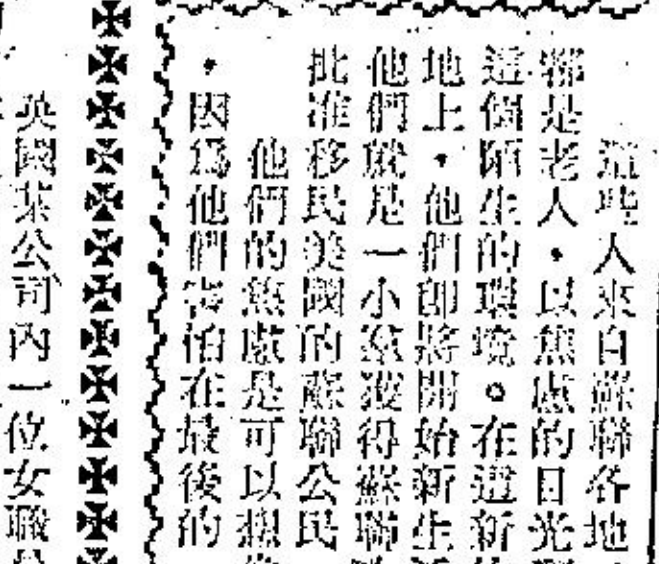 這些人來自蘇聯各地
都是老人，以焦慮的目光
這個陌生的環境。在這新
地上，他們即將開始新生
他們就是一小羣獲得蘇聯
批准移民美國的蘇聯公民
他們的焦慮是可以想
，因為他們害怕在最後的
英國某公司內一位女職